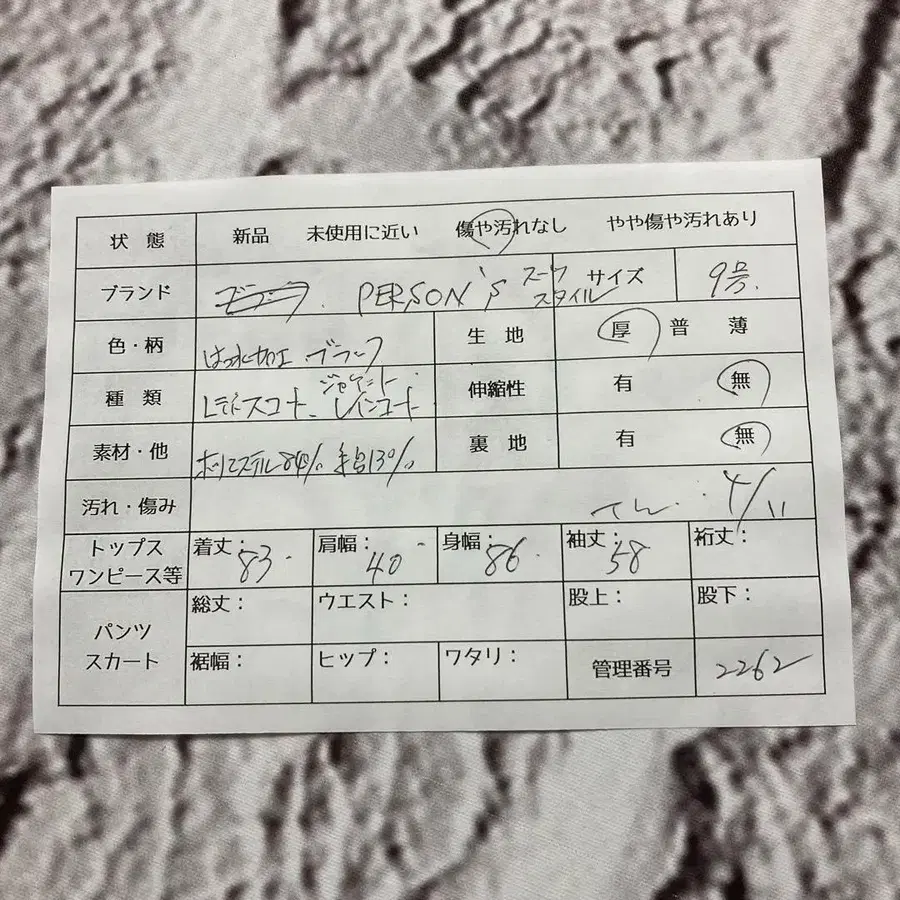 状態 新品 未使用に近い 傷や汚れなし やや傷や汚れあり
ブランド PERSON'S スーツスタイル サイズ 9号.
色・柄 はっ水加工 ブラック 生地 厚 普 薄
種類 レディスコート、ジャケット レインコート 伸縮性 有 無
素材・他 ポリエステル 裏地 有 無
汚れ・傷み 4/11
トップス ワンピース等 着丈: 83 肩幅: 40 身幅: 86 袖丈: 58 裄丈:
パンツ スカート 総丈: ウエスト: 股上: 股下:
裾幅: ヒップ: ワタリ: 管理番号 2262